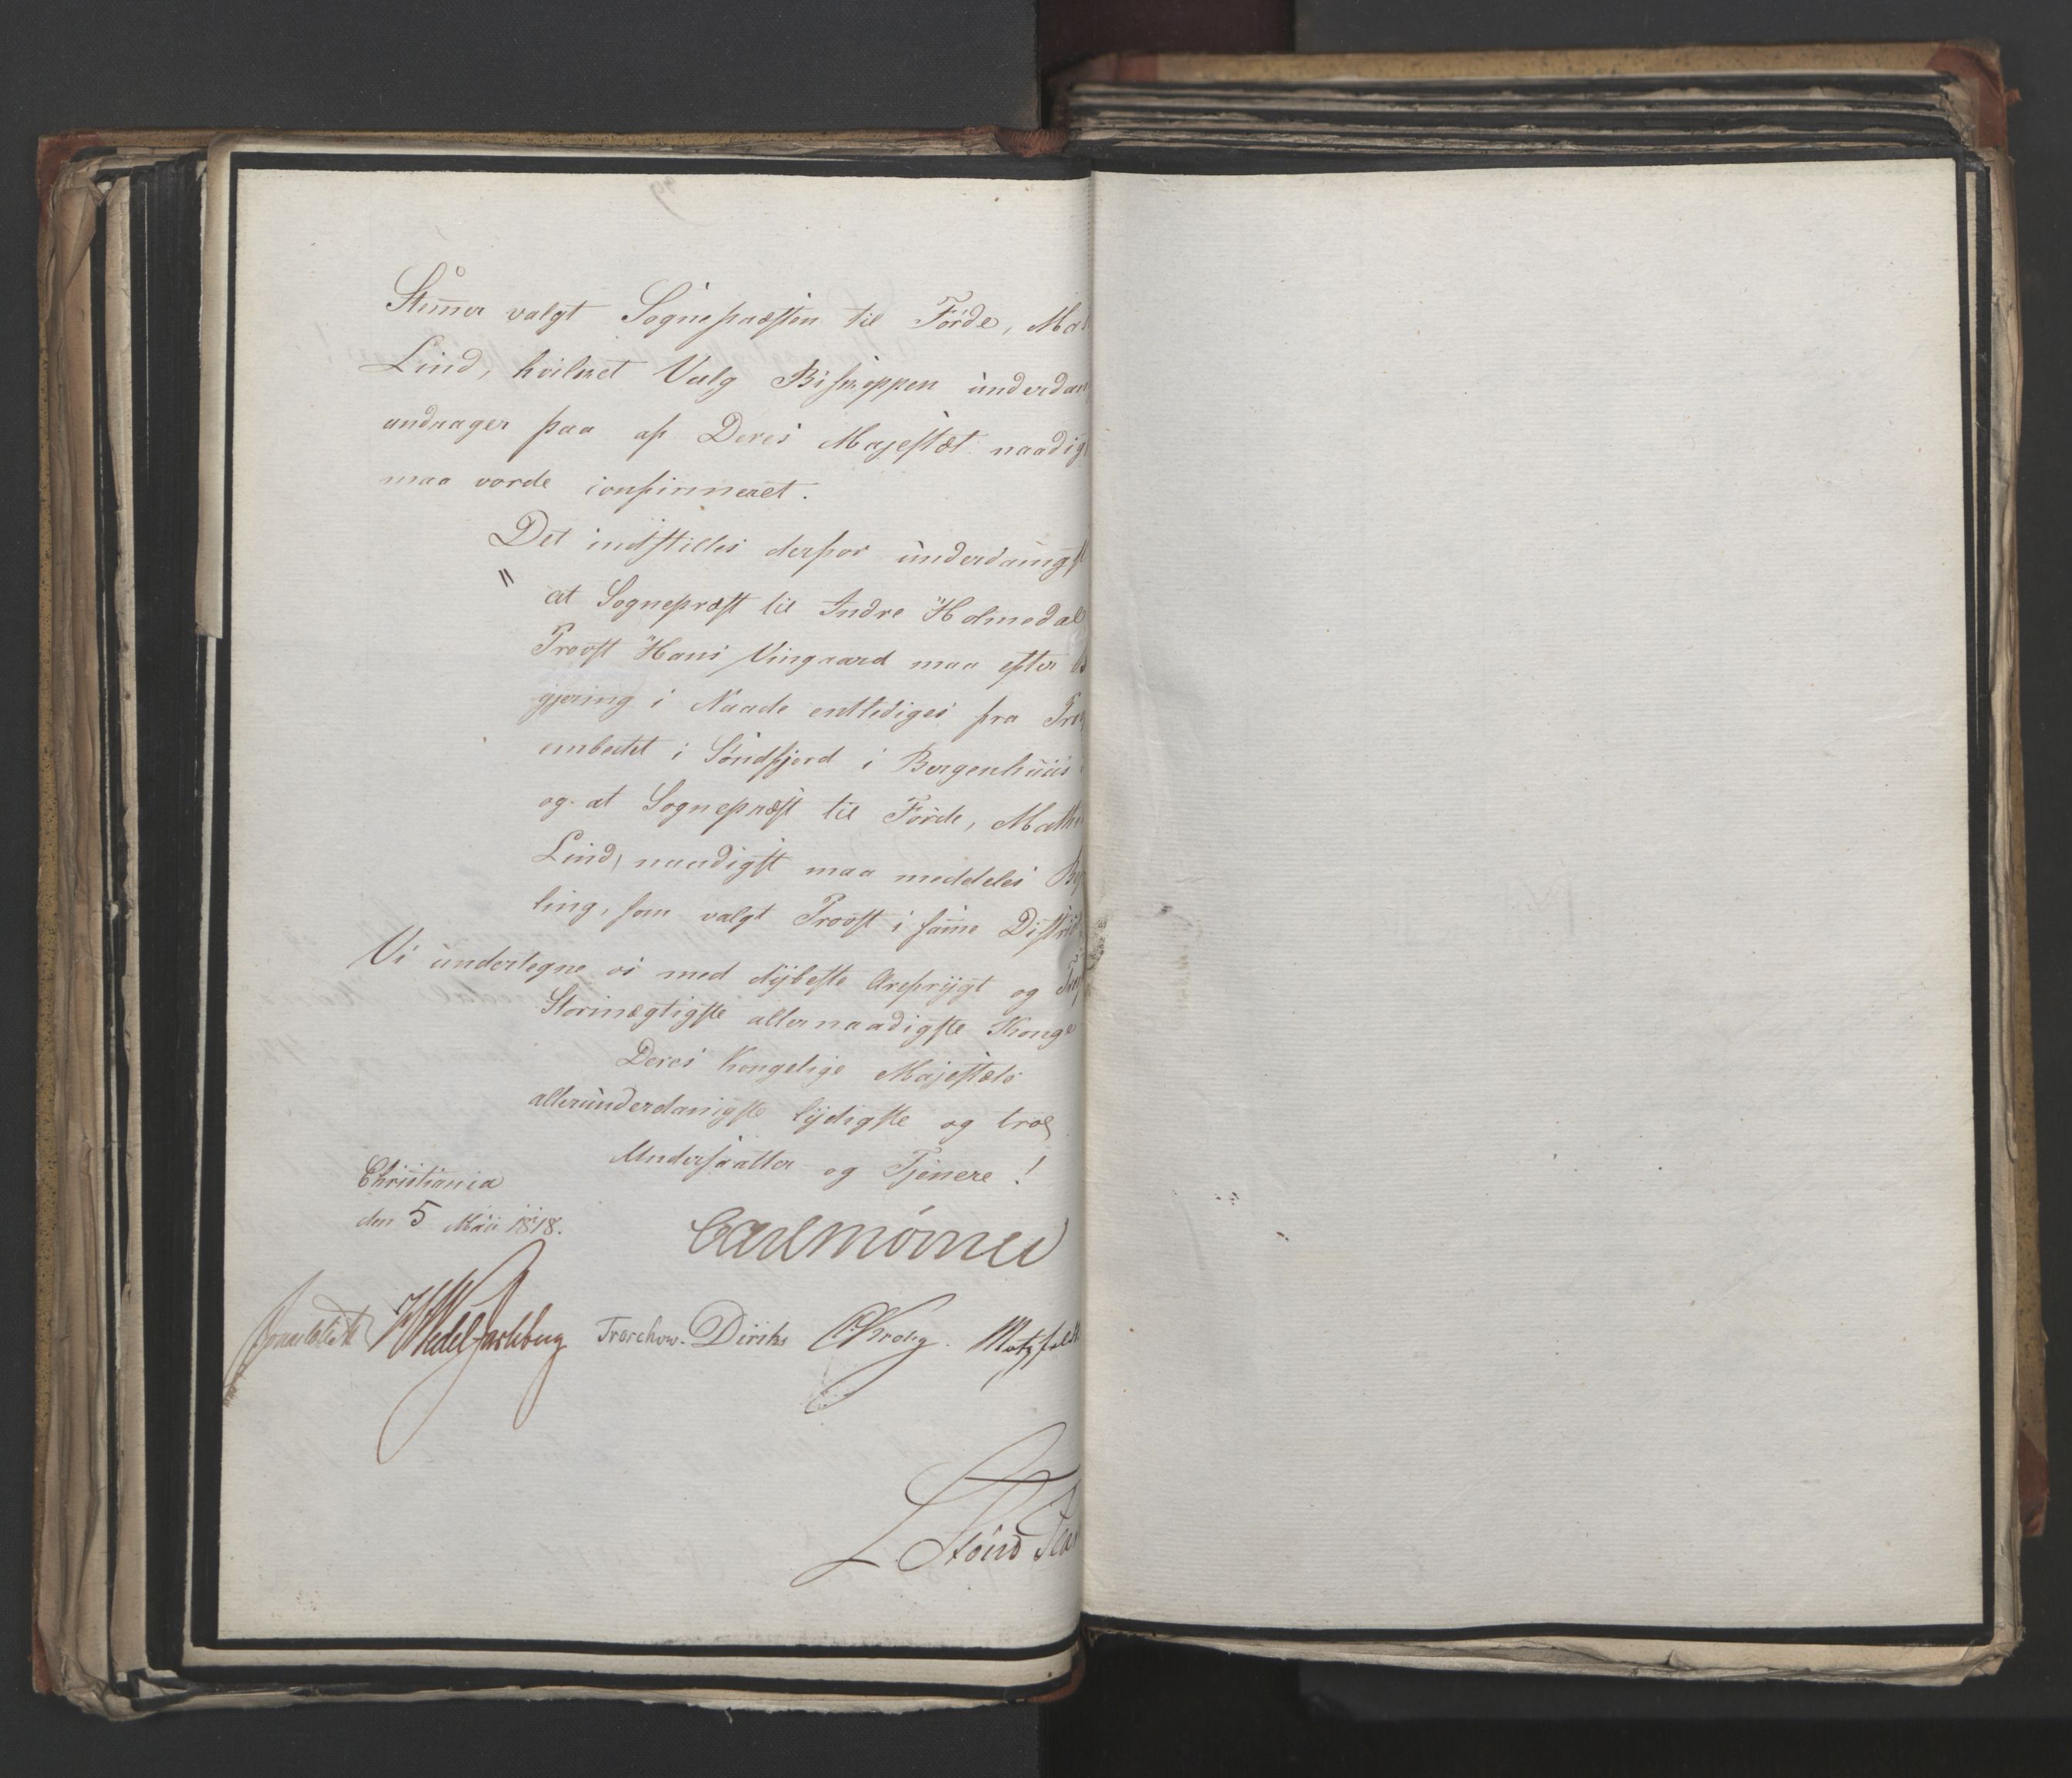 Stem̅er valgt Sognepræsten til Förde, Mat
Lind, hvilket Valg Biskoppen underdan
andrager paa af Deres Majestæt naadig
maa vorde confirmeret.
Det indstilles derfor underdanigst
" at Sognepræst til Indre Holmedal
Provst Hans Vingaard maa efter
gjæring i Naade entlediges fra Pro
embedet i Söndfjord i Bergenhuus
og at Sognepræst til Förde, Math
Lind, naadigst maa meddeles Be
ling, som valgt Provst i sam̅e District
Vi undertegne os med dybeste Ærefrygt og
Stormægtigste allernaadigste Konge
Deres Kongelige Majestæts
allerunderdanigste lydigste og troe
Undersaatter og Tjenere!
Christiania
den 5 Maii 1818.
Carl Mörner
Sommerhielm HWedel Jarlsberg Treschow. Diriks CKrohg. Motzfeldt